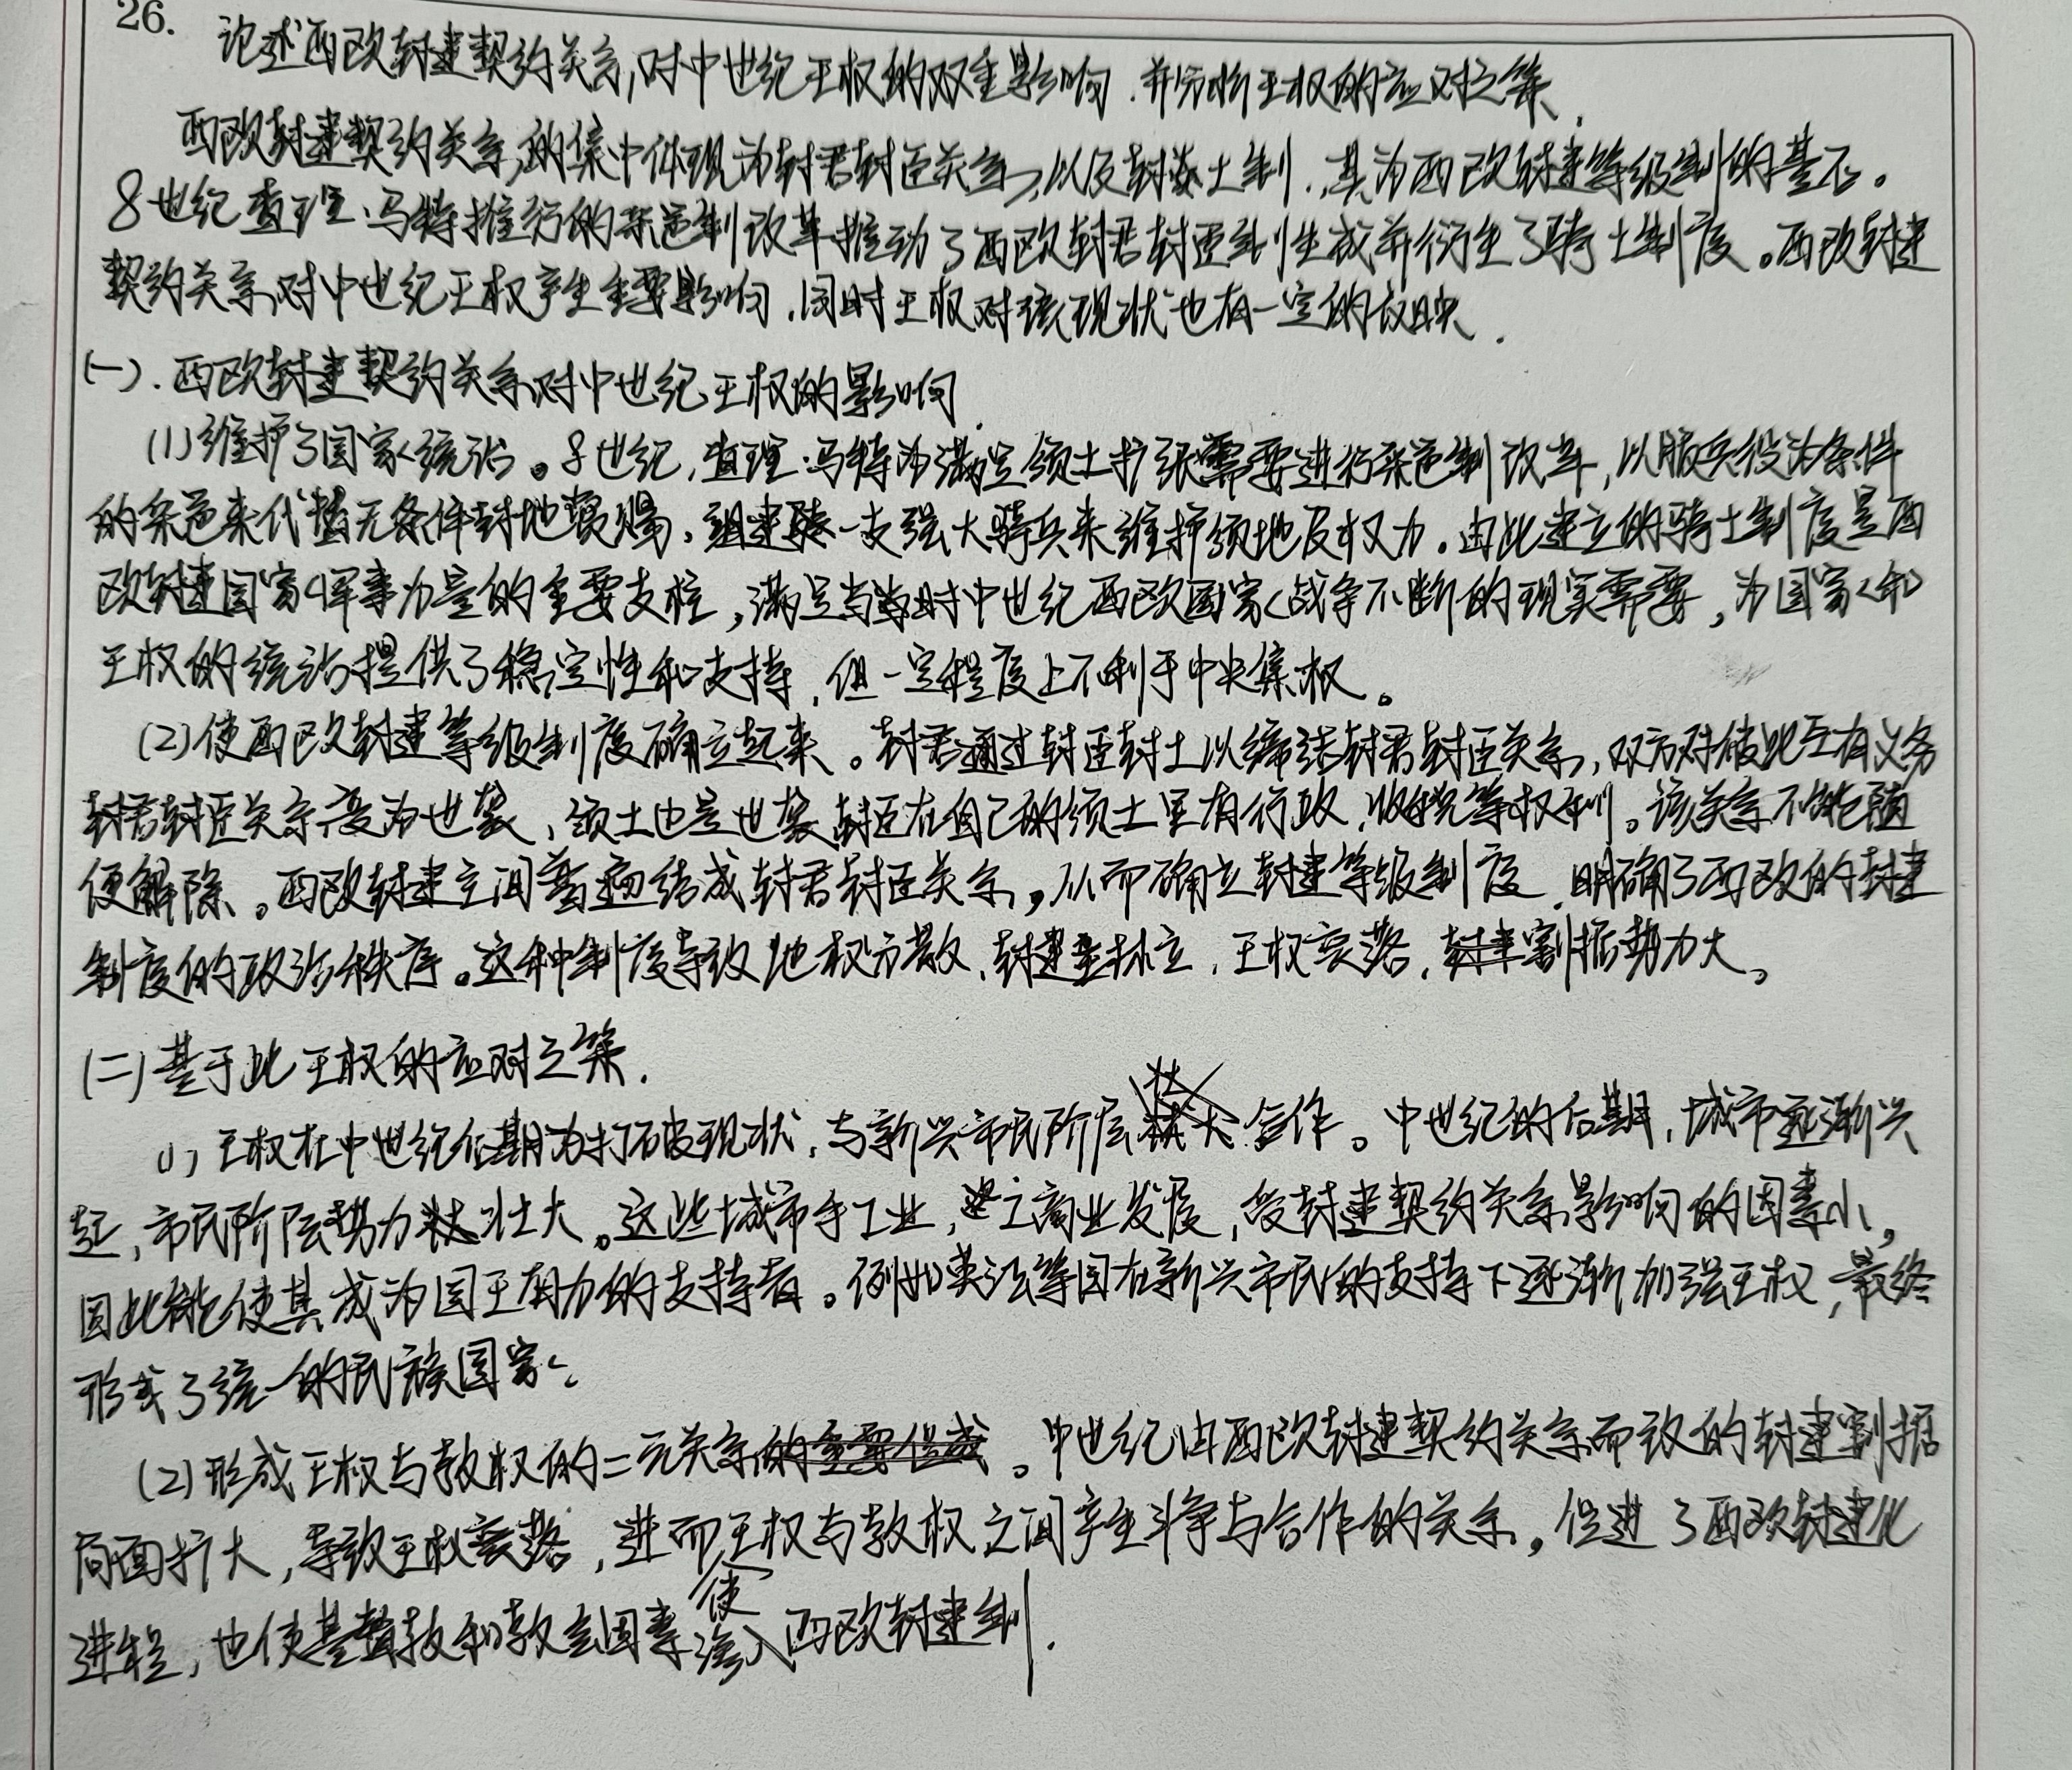 26.
论述西欧封建契约关系,对中世纪王权的双重影响.并分析王权的应对之策.
西欧封建契约关系,的集中体现为封君封臣关系,以及封土制.,其为西欧封建等级制的基石。
8世纪查理·马特推行的采邑制改革推动了西欧封君封臣制生成并衍生了骑士制度。西欧封建
契约关系对中世纪王权产生重要影响.同时王权对该现状也有一定的反映.
(一).西欧封建契约关系对中世纪王权的影响.
(1)维护了国家统治。8世纪,查理·马特为满足领土扩张需要进行采邑制改革,以服兵役为条件
的采邑来代替无条件封地赏赐,组建一支强大骑兵来维护领地及权力.由此建立的骑士制度是西
欧封建国家军事力量的重要支柱,满足当时中世纪西欧国家战争不断的现实需要,为国家和
王权的统治提供了稳定性和支持,但一定程度上不利于中央集权。
(2)使西欧封建等级制度确立起来。封君通过封臣封土以缔结封君封臣关系,双方对彼此互有义务
封君封臣关系变为世袭,领土也是世袭,封臣在自己的领土里有行政,收税等权利。该关系不能随
便解除。西欧封建主间普遍结成封君封臣关系,从而确立封建等级制度,明确了西欧的封建
制度的政治秩序。这种制度导致地权分散,封建主林立,王权衰落,割据势力大。
(二)基于此王权的应对之策.
(1)王权在中世纪后期为打破现状,与新兴市民阶层合作。中世纪的后期,城市逐渐兴
起,市民阶层势力壮大。这些城市手工业,工商业发展,受封建契约关系影响的因素小,
因此能使其成为国王有力的支持者。例如英法等国在新兴市民的支持下逐渐加强王权,最终
形成了统一的民族国家。
(2)形成王权与教权的二元关系。中世纪由西欧封建契约关系而致的封建割据
局面扩大,导致王权衰落,进而使王权与教权之间产生斗争与合作的关系,促进了西欧封建化
进程,也使基督教和教会因素渗入西欧封建制.